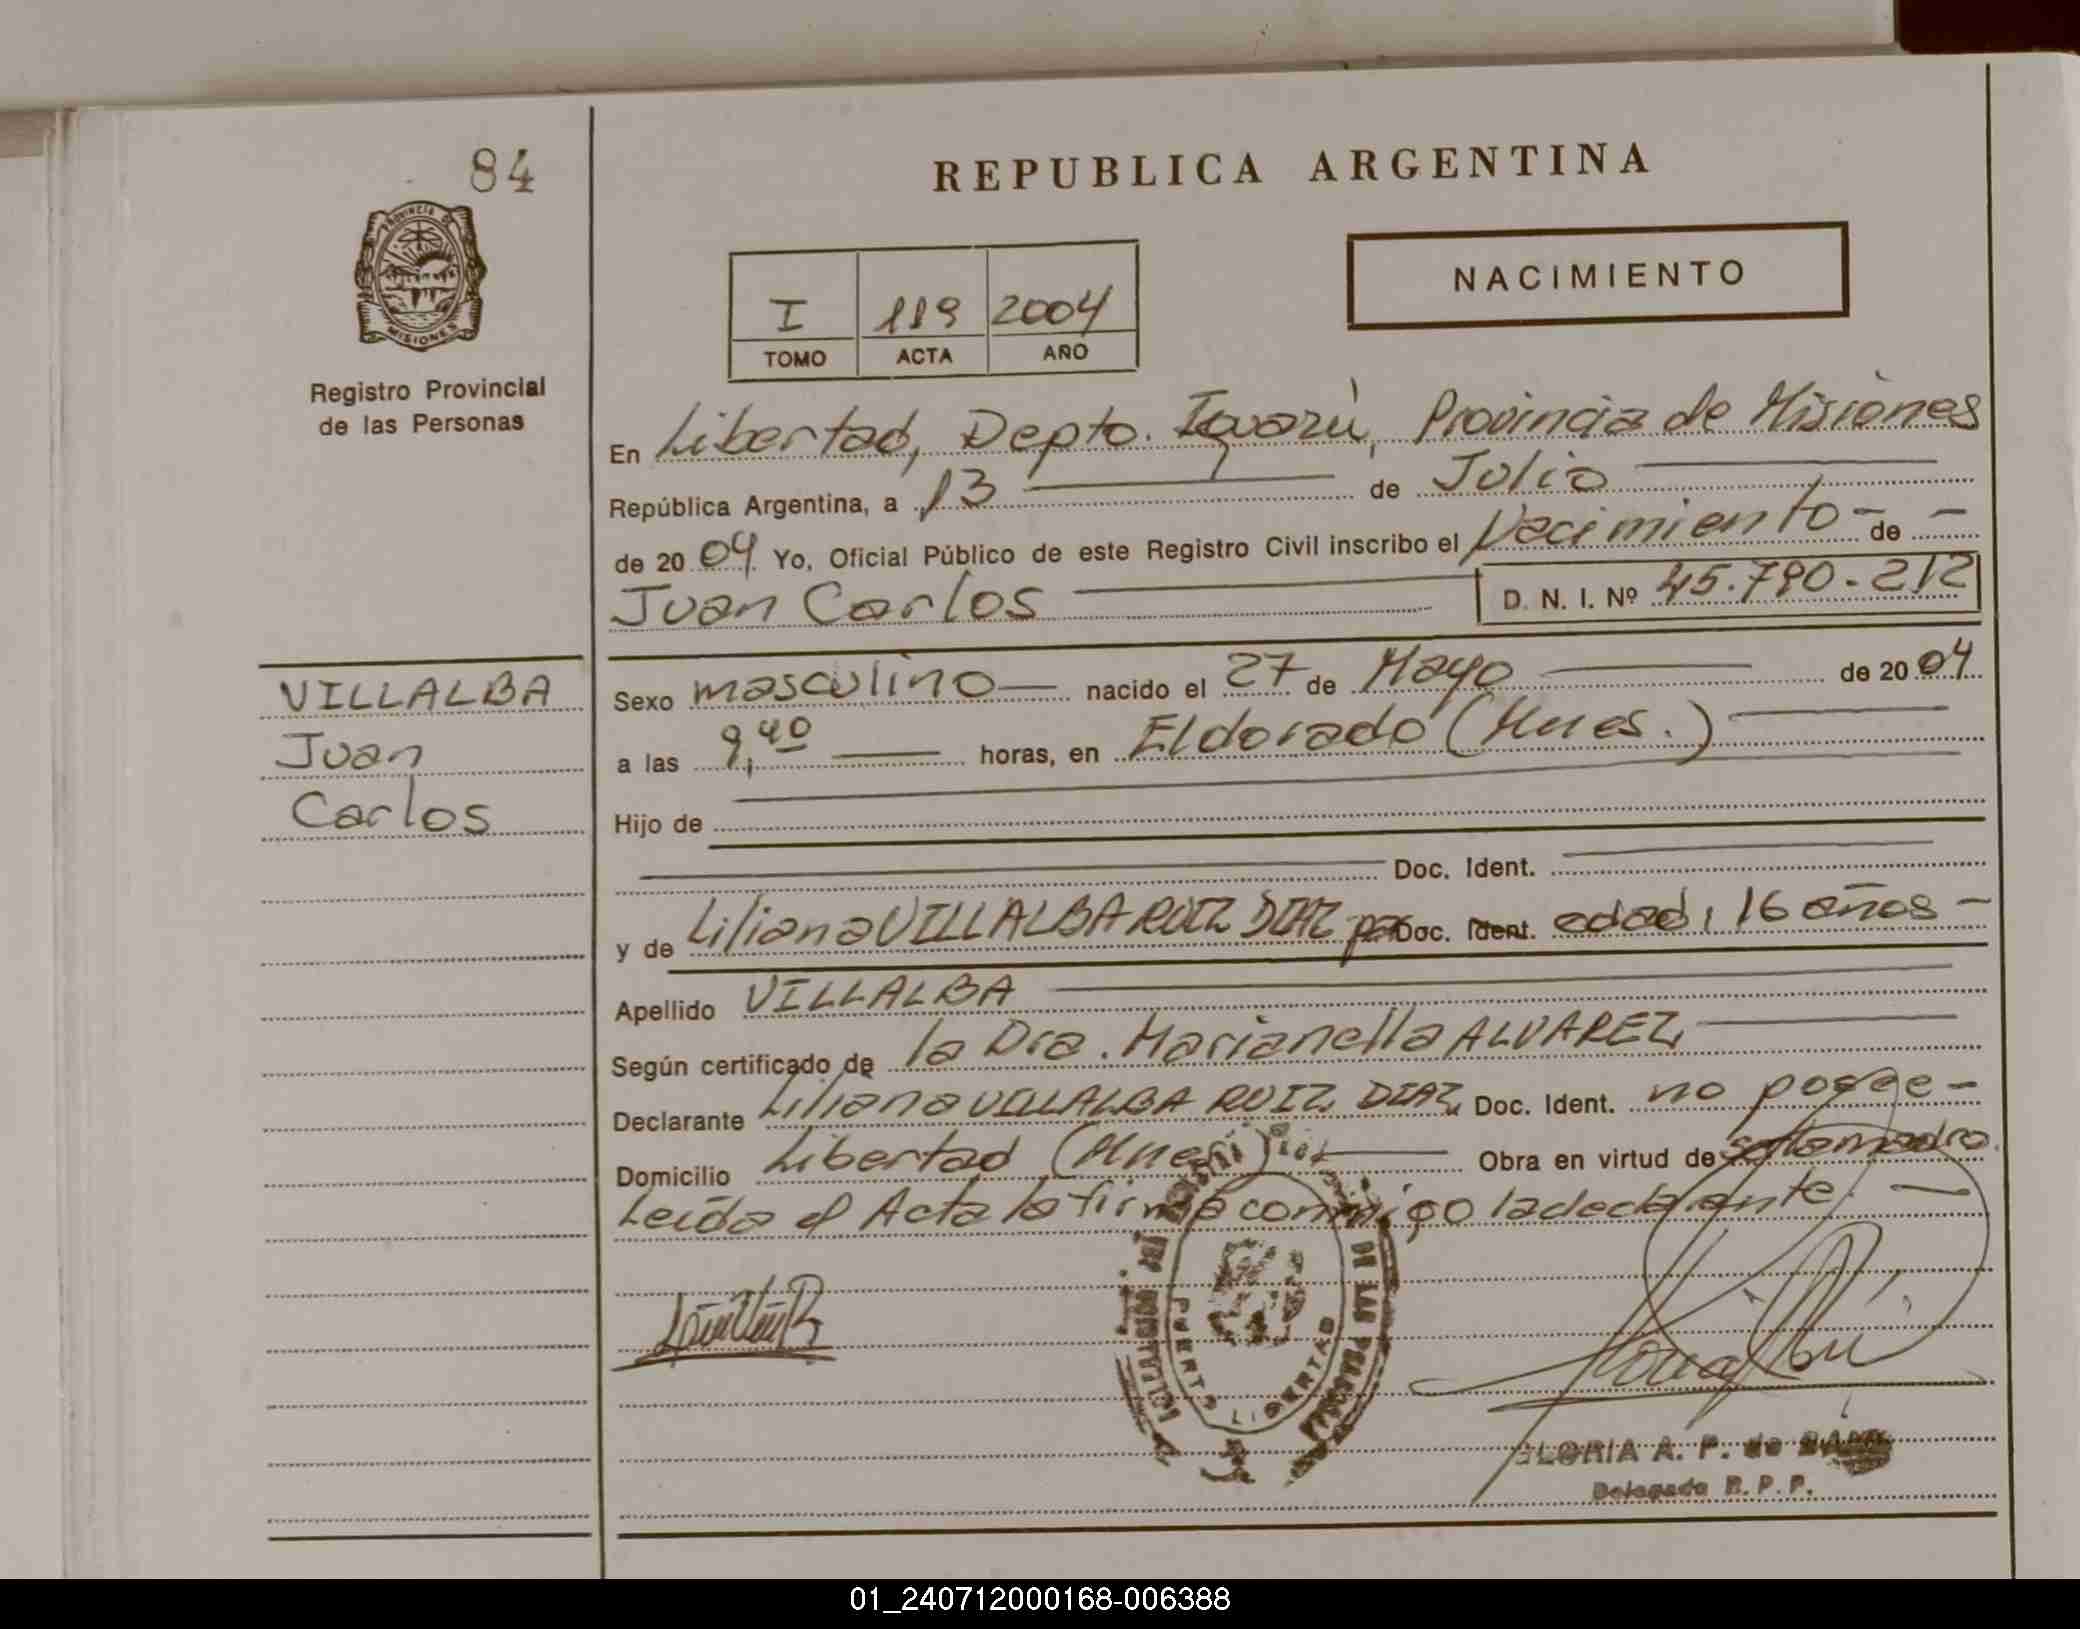 84
REPUBLICA ARGENTINA
PROVINCIA DE
MISIONES
Registro Provincial
de las Personas
I 119 2004
TOMO ACTA AÑO
NACIMIENTO
En Libertad, Depto. Iguazú, Provincia de Misiones
República Argentina, a 13 de Julio
de 2004 Yo, Oficial Público de este Registro Civil inscribo el Nacimiento - de -
Juan Carlos D. N. I. Nº 45.790.212
VILLALBA
Juan
Carlos
Sexo masculino nacido el 27 de Mayo de 2004
a las 9,40 horas, en Eldorado (Mnes.)
Hijo de
Doc. Ident.
y de Liliana VILLALBA RUIZ DIAZ Doc. Ident. edad, 16 años -
Apellido VILLALBA
Según certificado de la Dra. Marianella ALVAREZ
Declarante Liliana VILLALBA RUIZ DIAZ Doc. Ident. no posee -
Domicilio Libertad (Mnes) Obra en virtud de madre.
Leída el Acta la firma conmigo la declarante. -
DE LAS PERSONAS
PUERTO LIBERTAD
GLORIA A. P. de
Delegada R. P. P.
01_240712000168-006388